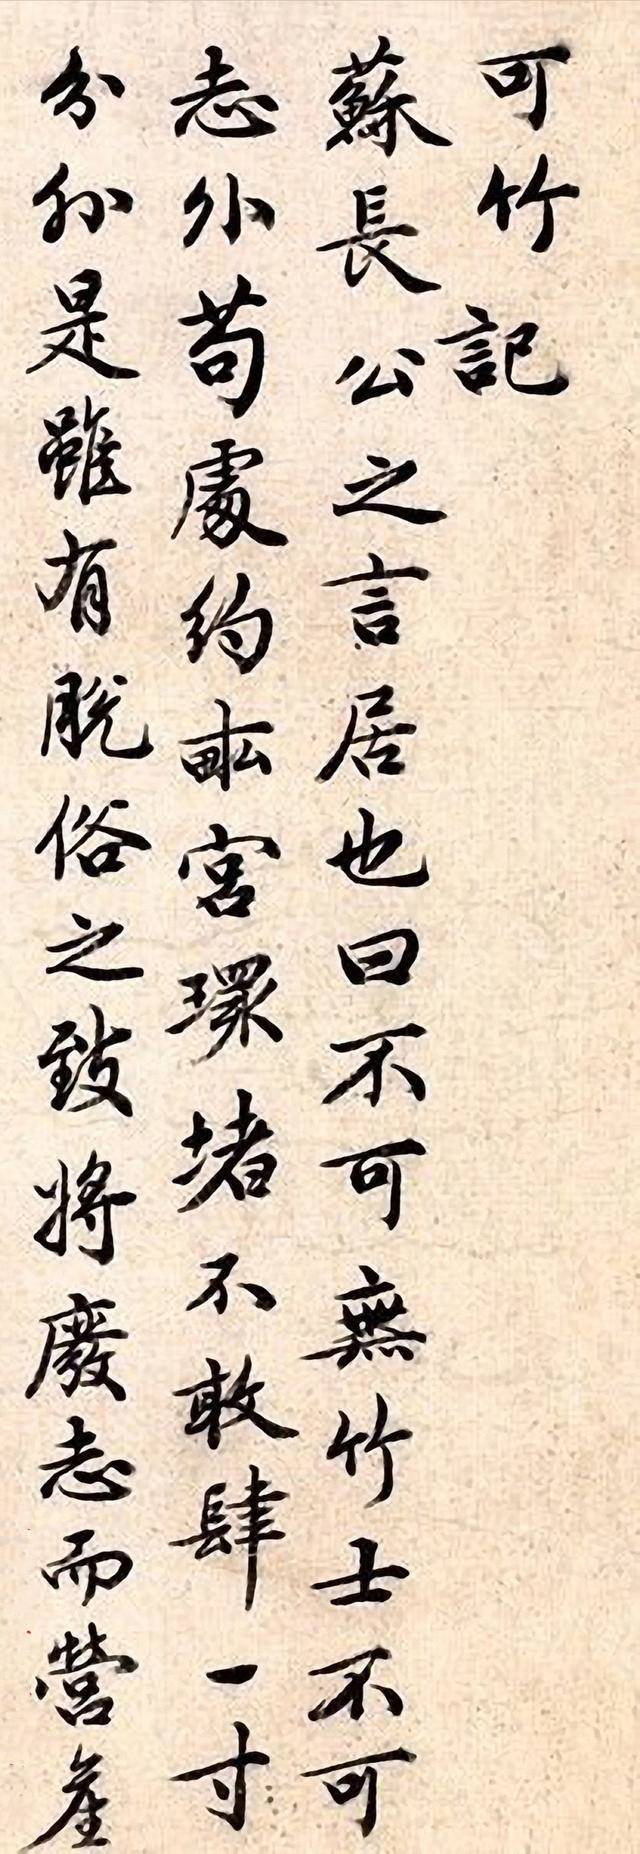 可竹記
蘇長公之言居也曰不可無竹士不可
志外苟處約畝宮環堵不敢肆一寸
分外是雖有脫俗之致將廢志而營產